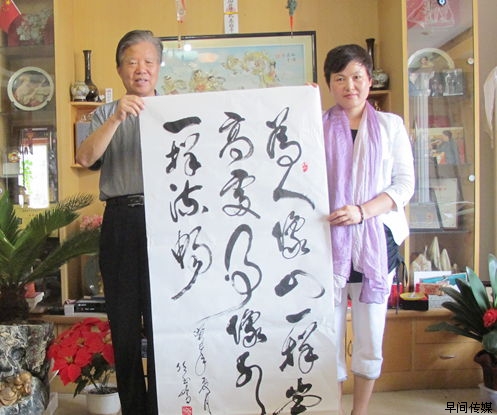 為人像山一样崇
高處事像水
一样流畅
早间传媒